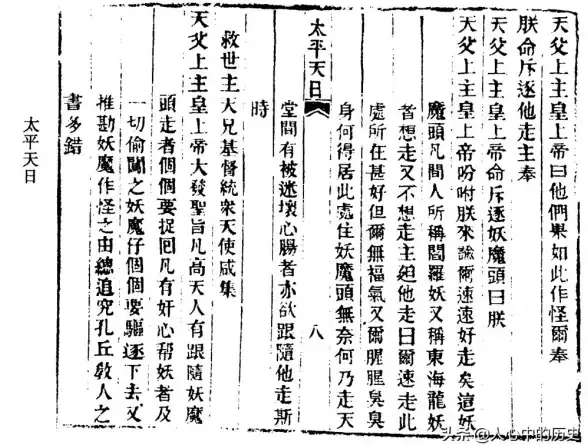 天父上主皇上帝曰他們果如此作怪爾奉
朕命斥逐他走主奉
天父上主皇上帝命斥逐妖魔頭曰朕
天父上主皇上帝吩咐朕來諭爾速速好走矣這妖
魔頭凡間人所稱閻羅妖又稱東海龍妖
者想走又不想走主他走曰爾速走此
處所在甚好但爾無福氣又爾腥腥臭臭
身何得居此處住妖魔頭無奈何乃走天
太平天日 八
堂間有被迷壞心腸者亦欲跟隨他走斯
時
救世主天兄基督統衆天使咸集
天父上主皇上帝大發聖旨凡高天人有跟隨妖魔
頭走者個個要捉囘凡有奸心幫妖者及
一切偷闖之妖魔仔個個要驅逐下去又
推勘妖魔作怪之由總追究孔丘教人之
書多錯
太平天日
头条@人心中的历史